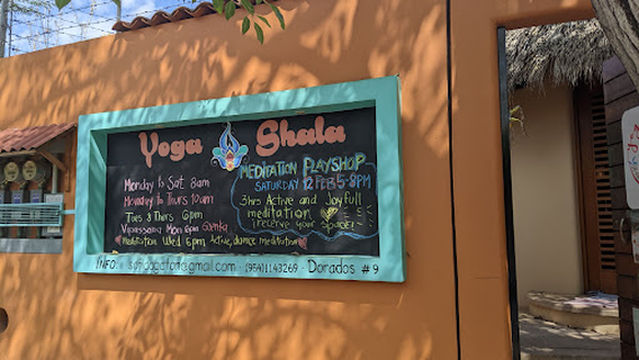 Yoga Shala
MEDITATION PLAYSHOP
SATURDAY 12 FEB 5-8PM
3hrs Active and Joyfull
meditation
reserve your space!
Monday to Sat 8am
Monday to Thurs 10am
Tues & Thurs 6pm
Vipassana Mon 6pm Goenka
meditation Wed 6pm Active, dance meditation
INFO: @gmail.com - (954)1143269 - Dorados #9